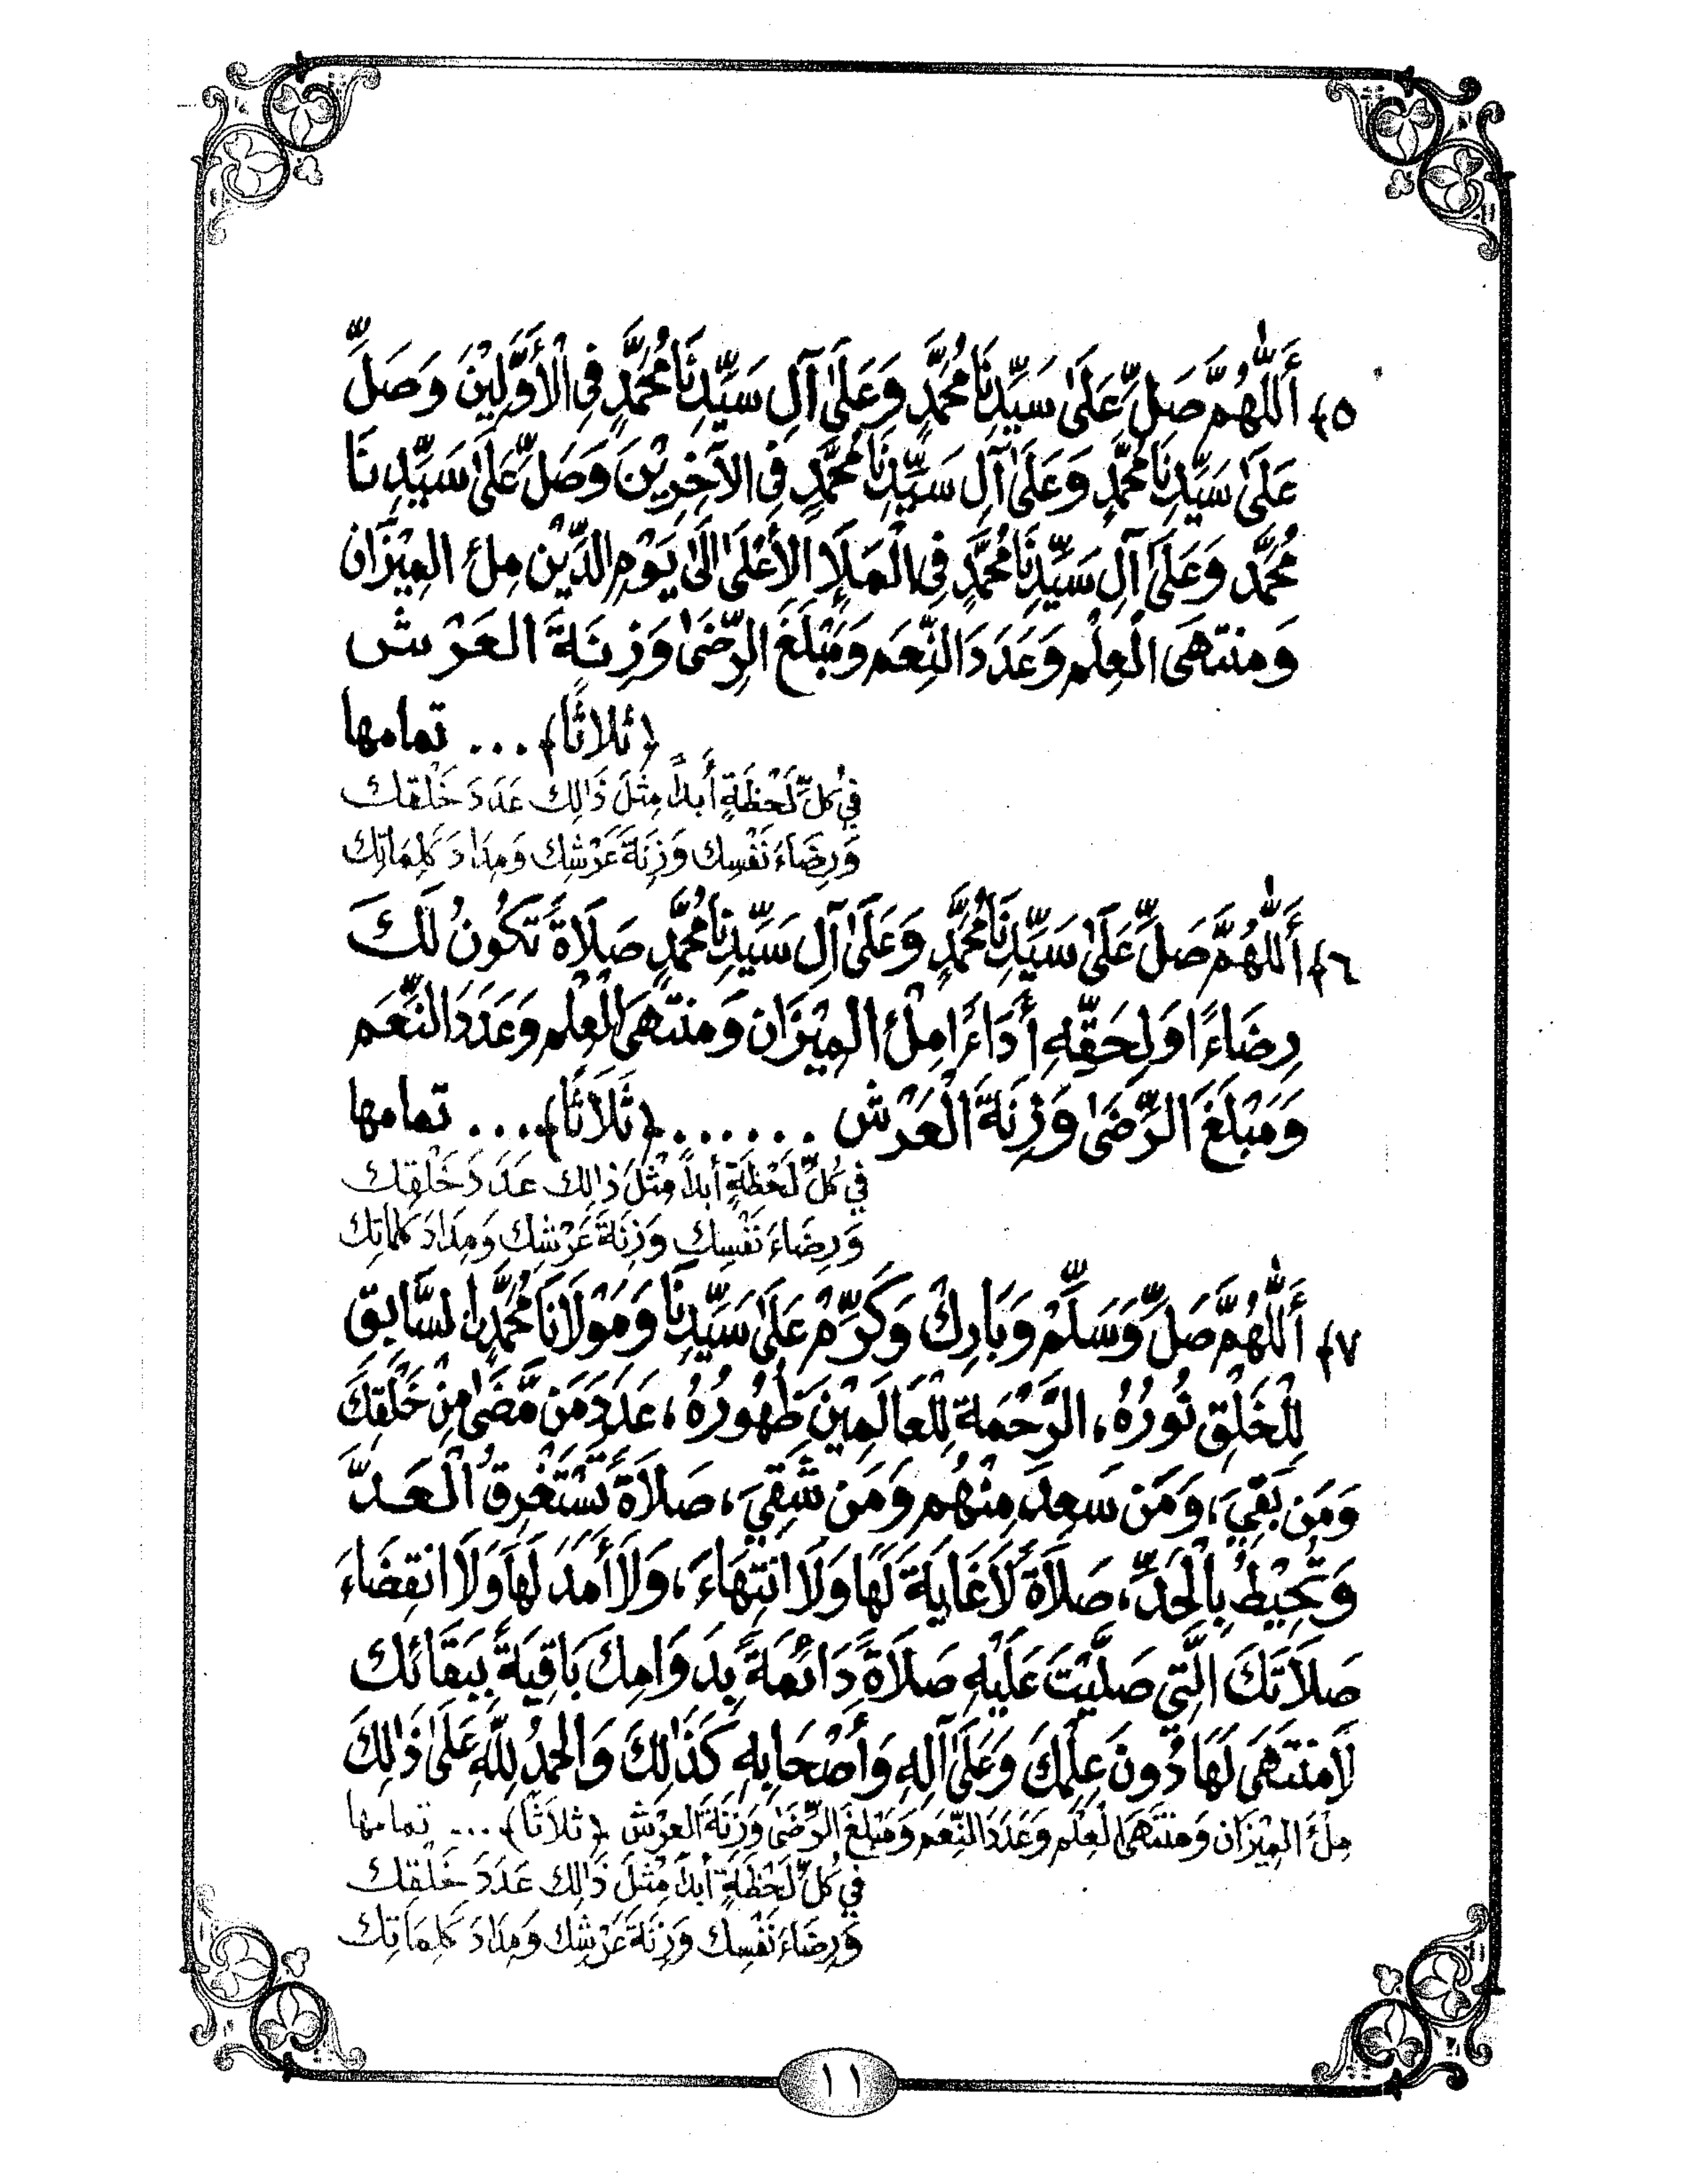 ٥﴾ أَللّٰهُمَّ صَلِّ عَلَىٰ سَيِّدِنَا مُحَمَّدٍ وَعَلَىٰ آلِ سَيِّدِنَا مُحَمَّدٍ فِي الْأَوَّلِيْنَ وَصَلِّ
عَلَىٰ سَيِّدِنَا مُحَمَّدٍ وَعَلَىٰ آلِ سَيِّدِنَا مُحَمَّدٍ فِي الآخِرِيْنَ وَصَلِّ عَلَىٰ سَيِّدِنَا
مُحَمَّدٍ وَعَلَىٰ آلِ سَيِّدِنَا مُحَمَّدٍ فِي الْمَلَإِ الْأَعْلَىٰ إِلَىٰ يَوْمِ الدِّيْنِ مِلْءَ الْمِيْزَانِ
وَمُنْتَهَى الْعِلْمِ وَعَدَدَ النِّعَمِ وَمَبْلَغَ الرِّضَىٰ وَزِنَةَ الْعَرْشِ
﴿ثَلَاثًا﴾... تمامها
فِي كُلِّ لَحْظَةٍ أَبَدًا مِثْلَ ذَالِكَ عَدَدَ خَلْقِكَ
وَرِضَاءَ نَفْسِكَ وَزِنَةَ عَرْشِكَ وَمِدَادَ كَلِمَاتِكَ
٦﴾ أَللّٰهُمَّ صَلِّ عَلَىٰ سَيِّدِنَا مُحَمَّدٍ وَعَلَىٰ آلِ سَيِّدِنَا مُحَمَّدٍ صَلَاةً تَكُونُ لَكَ
رِضَاءً وَلِحَقِّهِ أَدَاءً مِلْءَ الْمِيْزَانِ وَمُنْتَهَى الْعِلْمِ وَعَدَدَ النِّعَمِ
وَمَبْلَغَ الرِّضَىٰ وَزِنَةَ الْعَرْشِ ......﴿ثَلَاثًا﴾.... تمامها
فِي كُلِّ لَحْظَةٍ أَبَدًا مِثْلَ ذَالِكَ عَدَدَ خَلْقِكَ
وَرِضَاءَ نَفْسِكَ وَزِنَةَ عَرْشِكَ وَمِدَادَ كَلِمَاتِكَ
٧﴾ أَللّٰهُمَّ صَلِّ وَسَلِّمْ وَبَارِكْ وَكَرِّمْ عَلَىٰ سَيِّدِنَا وَمَوْلَانَا مُحَمَّدٍ السَّابِقِ
لِلْخَلْقِ نُورُهُ، الرَّحْمَةِ لِلْعَالَمِيْنَ ظُهُورُهُ، عَدَدَ مَن مَّضَىٰ مِنْ خَلْقِكَ
وَمَن بَقِيَ، وَمَن سَعِدَ مِنْهُم وَمَن شَقِيَ، صَلَاةً تَسْتَغْرِقُ الْعَدَّ
وَتُحِيْطُ بِالْحَدِّ، صَلَاةً لَا غَايَةَ لَهَا وَلَا انْتِهَاءَ، وَلَا أَمَدَ لَهَا وَلَا انْقِضَاءَ
صَلَاتَكَ الَّتِي صَلَّيْتَ عَلَيْهِ صَلَاةً دَائِمَةً بِدَوَامِكَ بَاقِيَةً بِبَقَائِكَ
لَا مُنْتَهَى لَهَا دُونَ عِلْمِكَ وَعَلَىٰ آلِهِ وَأَصْحَابِهِ كَذَالِكَ وَالْحَمْدُ لِلَّهِ عَلَىٰ ذَالِكَ
مِلْءَ الْمِيْزَانِ وَمُنْتَهَى الْعِلْمِ وَعَدَدَ النِّعَمِ وَمَبْلَغَ الرِّضَىٰ وَزِنَةَ الْعَرْشِ ﴿ثَلَاثًا﴾... تمامها
فِي كُلِّ لَحْظَةٍ أَبَدًا مِثْلَ ذَالِكَ عَدَدَ خَلْقِكَ
وَرِضَاءَ نَفْسِكَ وَزِنَةَ عَرْشِكَ وَمِدَادَ كَلِمَاتِكَ
١١